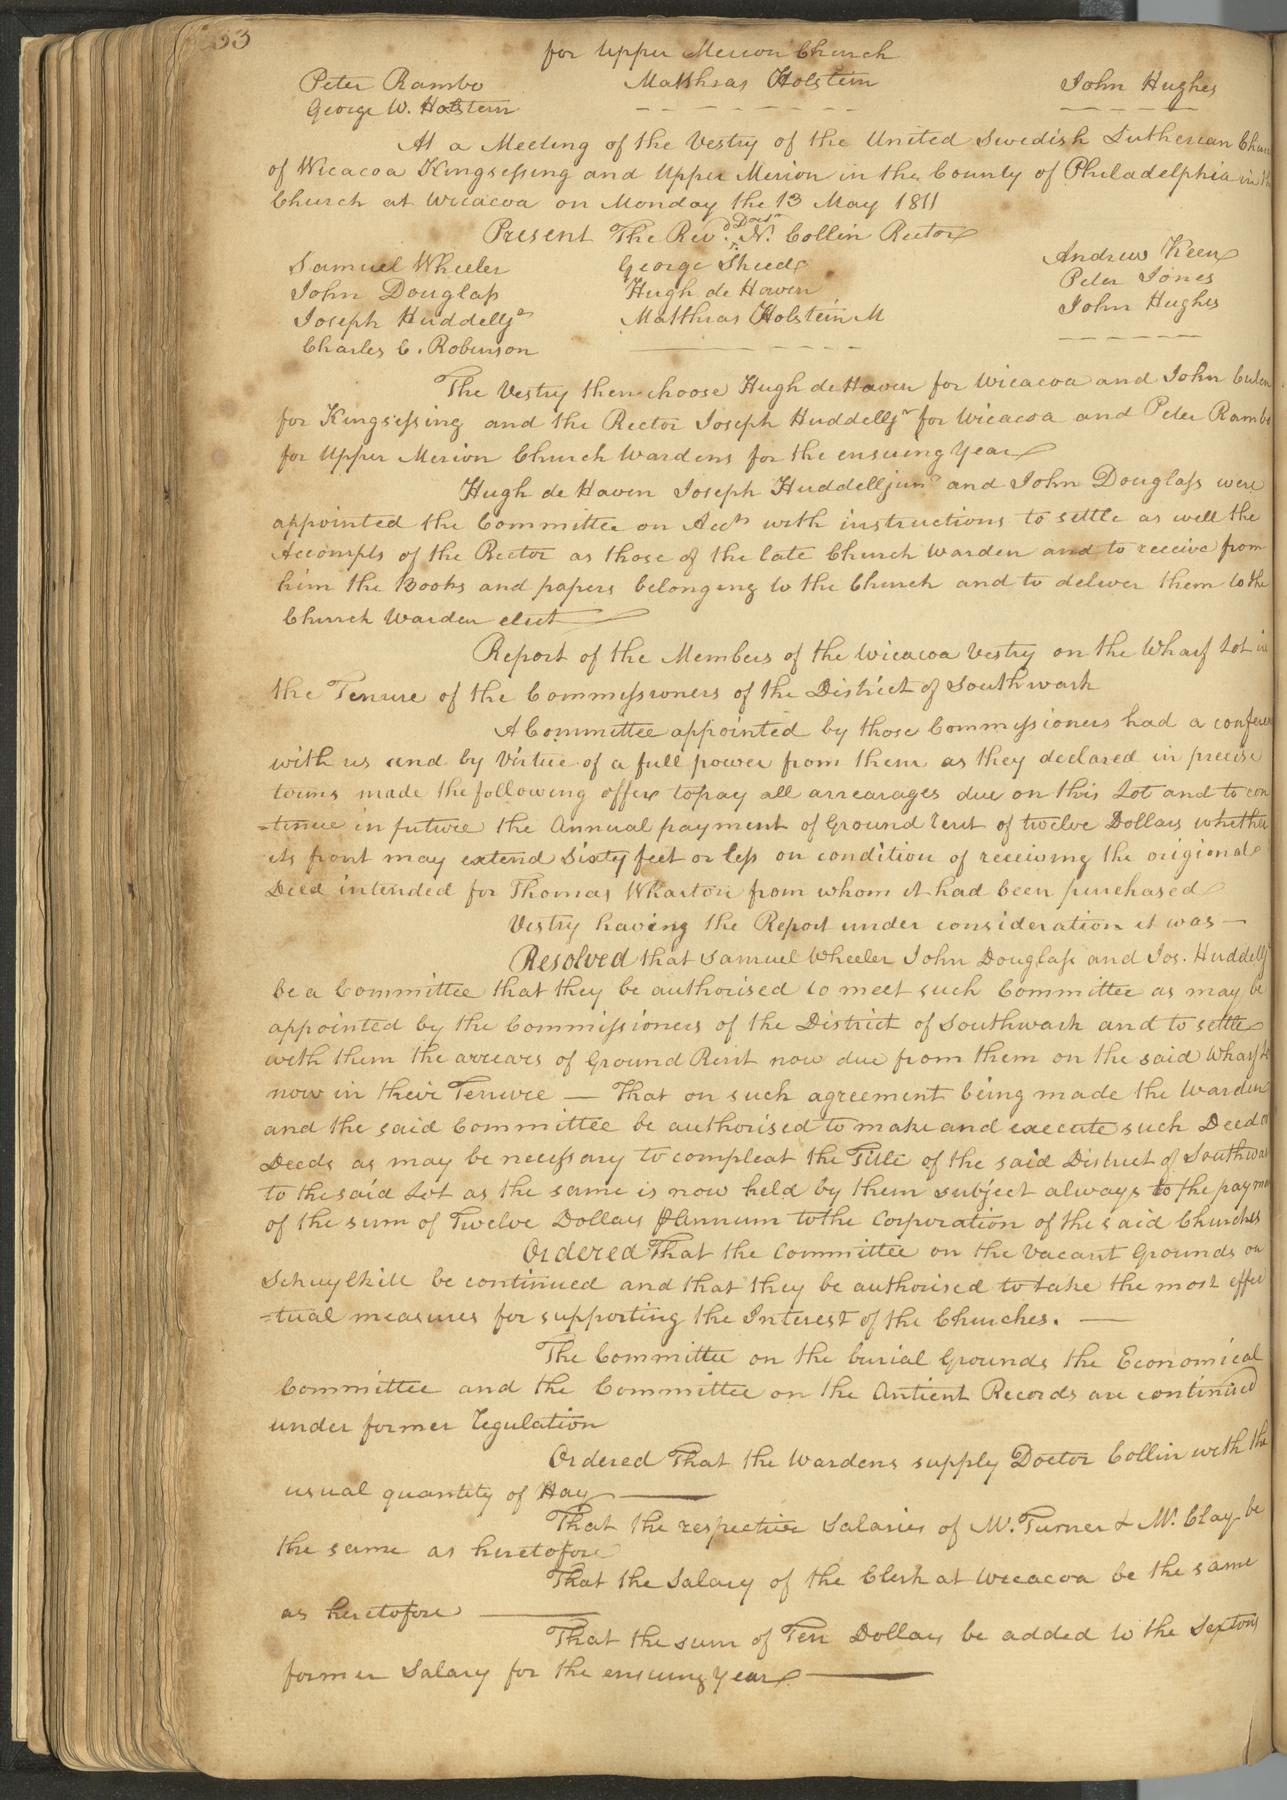 33
for Upper Merion Church
Peter Rambo Matthias Holstein John Hughes
George W. Holstein
At a Meeting of the Vestry of the United Swedish Lutherean Chur
of Wicacoa Kingsessing and Upper Merion in the County of Philadelphia in th
Church at Wicacoa on Monday the 13 May 1811
Present The Revd. Doct. N. Collin Rector
Samuel Wheeler George Sheed Andrew Keen
John Douglass Hugh de Haven Peter Jones
Joseph Huddell Jr Matthias Holstein M John Hughes
Charles C. Robinson
The Vestry then choose Hugh de Haven for Wicacoa and John
for Kingsessing and the Rector Joseph Huddell Jr for Wicacoa and Peter Rambo
for Upper Merion Church Wardens for the ensuing Year
Hugh de Haven Joseph Huddell junr and John Douglass were
appointed the Committee on Accts with instructions to settle as well the
Accompts of the Rector as those of the late Church Warden and to receive from
him the Books and papers belonging to the Church and to deliver them to the
Church Warden elect
Report of the Members of the Wicacoa Vestry on the Wharf Lot in
the Tenure of the Commissioners of the District of Southwark
A Committee appointed by those Commissioners had a conferen
with us and by Virtue of a full power from them as they declared in precise
terms made the following offer to pay all arrearages due on this Lot and to con
=tinue in future the Annual payment of Ground rent of twelve Dollars whether
its front may extend Sixty feet or less on condition of receiving the origional
Deed intended for Thomas Wharton from whom it had been purchased
Vestry having the Report under consideration it was —
Resolved that Samuel Wheeler John Douglass and Jos. Huddell Jr
be a Committee that they be authorised to meet such Committee as may be
appointed by the Commissioners of the District of Southwark and to settle
with them the arrears of Ground Rent now due from them on the said Wharf Lo
now in their Tenure — That on such agreement being made the Warden
and the said Committee be authorised to make and execute such Deed o
Deeds as may be necessary to compleat the Title of the said District of Southwa
to the said Lot as the same is now held by them subject always to the payme
of the sum of Twelve Dollars ℔ Annum to the Corporation of the said Churches
Ordered That the Committee on the Vacant Grounds on
Schuylkill be continued and that they be authorised to take the most effec
=tual measures for supporting the Interest of the Churches. —
The Committee on the burial Grounds the Economical
Committee and the Committee on the Antient Records are continued
under former regulation
Ordered That the Wardens supply Doctor Collin with the
usual quantity of Hay —
That the respective Salaries of Mr. Turner & Mr. Clay be
the same as heretofore
That the Salary of the Clerk at Wicacoa be the same
as heretofore —
That the sum of Ten Dollars be added to the Sextons
former Salary for the ensuing Year —